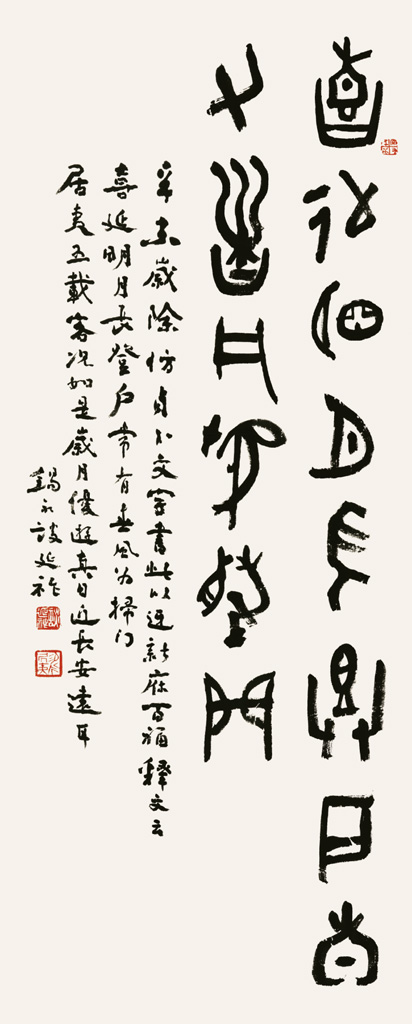 喜延明月長登戶常
有春風為掃門
辛未歲除仿貞卜文字書此以迓新庥百福釋文云
喜延明月長登戶常有春風為掃門
居夷五載客況如是歲月優遊真日近長安遠耳
錫永商承祚